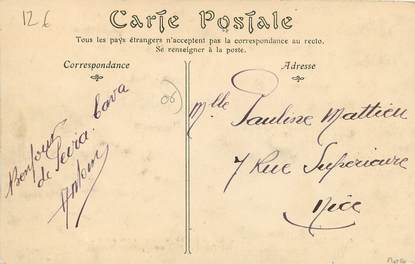 12 €
Carte Postale
Tous les pays étrangers n'acceptent pas la correspondance au recto.
Se renseigner à la poste.
Correspondance
Adresse
06
Bonjour
de Peira-Cava
Mlle Pauline Mattieu
7 Rue Supérieure
Nice